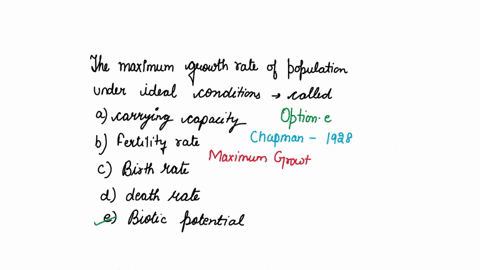 The maximum growth rate of population
under ideal conditions → called
a) carrying capacity Option e
b) Fertility rate Chapman - 1928
Maximum Growt
c) Birth rate
d) death rate
e) Biotic potential